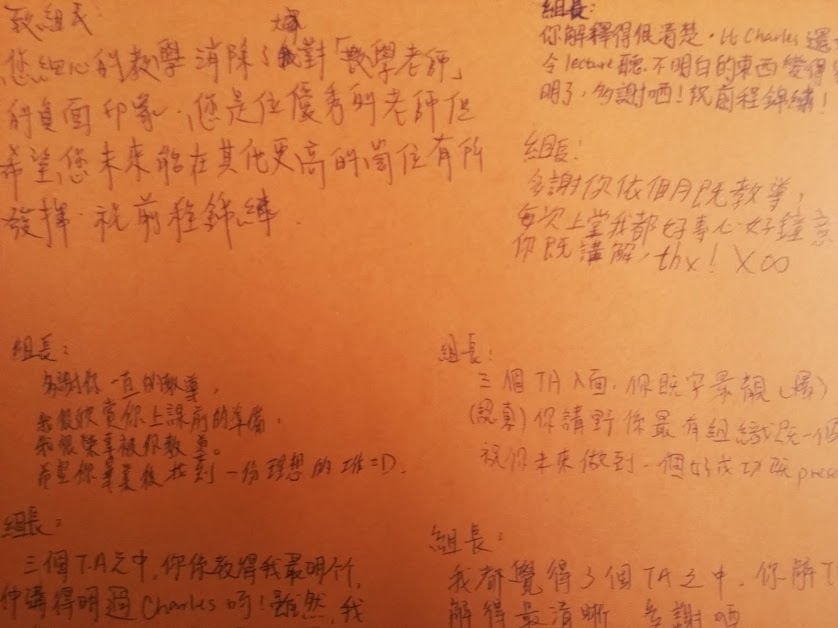 致組長：
您細心的教學消除了我對「數學老師」
的負面印象．您是位優秀的老師但
希望您未來能在其他更高的崗位有所
發揮．祝前程錦繡．
組長：
你解釋得很清楚，比Charles還
令lecture聽不明白的東西變得
明了，多謝哂！祝前程錦繡！
組長：
多謝你依個月既教導，
每次上堂我都好專心，好鐘意
你既講解，thx！X∞
組長：
多謝你一直的教導，
我很欣賞你上課前的準備，
我很榮幸被你教導。
希望你畢業後找到一份理想的工作=D.
組長：
三個TA入面，你既字最靚
(認真)你講野係最有組織既一個
祝你未來做到一個好成功既
組長：
三個T.A之中，你係教得我最明
仲講得明過Charles呀！雖然，我
組長：
我都覺得3個TA之中，你解
解得最清晰 多謝哂